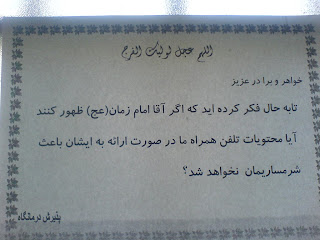 اللهم عجل لولیک الفرج
خواهر و برادر عزیز
تابه حال فکر کرده اید که اگر آقا امام زمان(عج) ظهور کنند
آیا محتویات تلفن همراه ما در صورت ارائه به ایشان باعث
شرمساریمان نخواهد شد؟
پذیرش درمانگاه